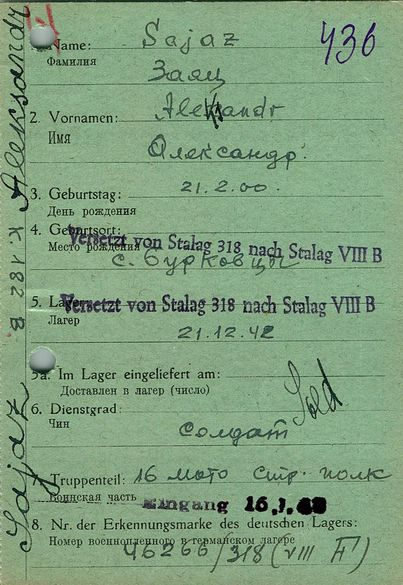 436
1. Name: Sajaz
Фамилия Заяц
2. Vornamen: Aleksandr
Имя Олександр.
3. Geburtstag: 21.2.00.
День рождения
4. Geburtsort:
Versetzt von Stalag 318 nach Stalag VIII B
Место рождения с. Бурковцы
5. Lager:
Versetzt von Stalag 318 nach Stalag VIII B
Лагер 21.12.42
5a. Im Lager eingeliefert am:
Доставлен в лагер (число)
Sold
6. Dienstgrad:
Чин солдат
7. Truppenteil: 16 мото стр. полк
Воинская часть Eingang 16.1.43
8. Nr. der Erkennungsmarke des deutschen Lagers:
Номер военнопленного в германском лагере
46266/318 (VIII F)
Sajaz K. 182 B Aleksandr